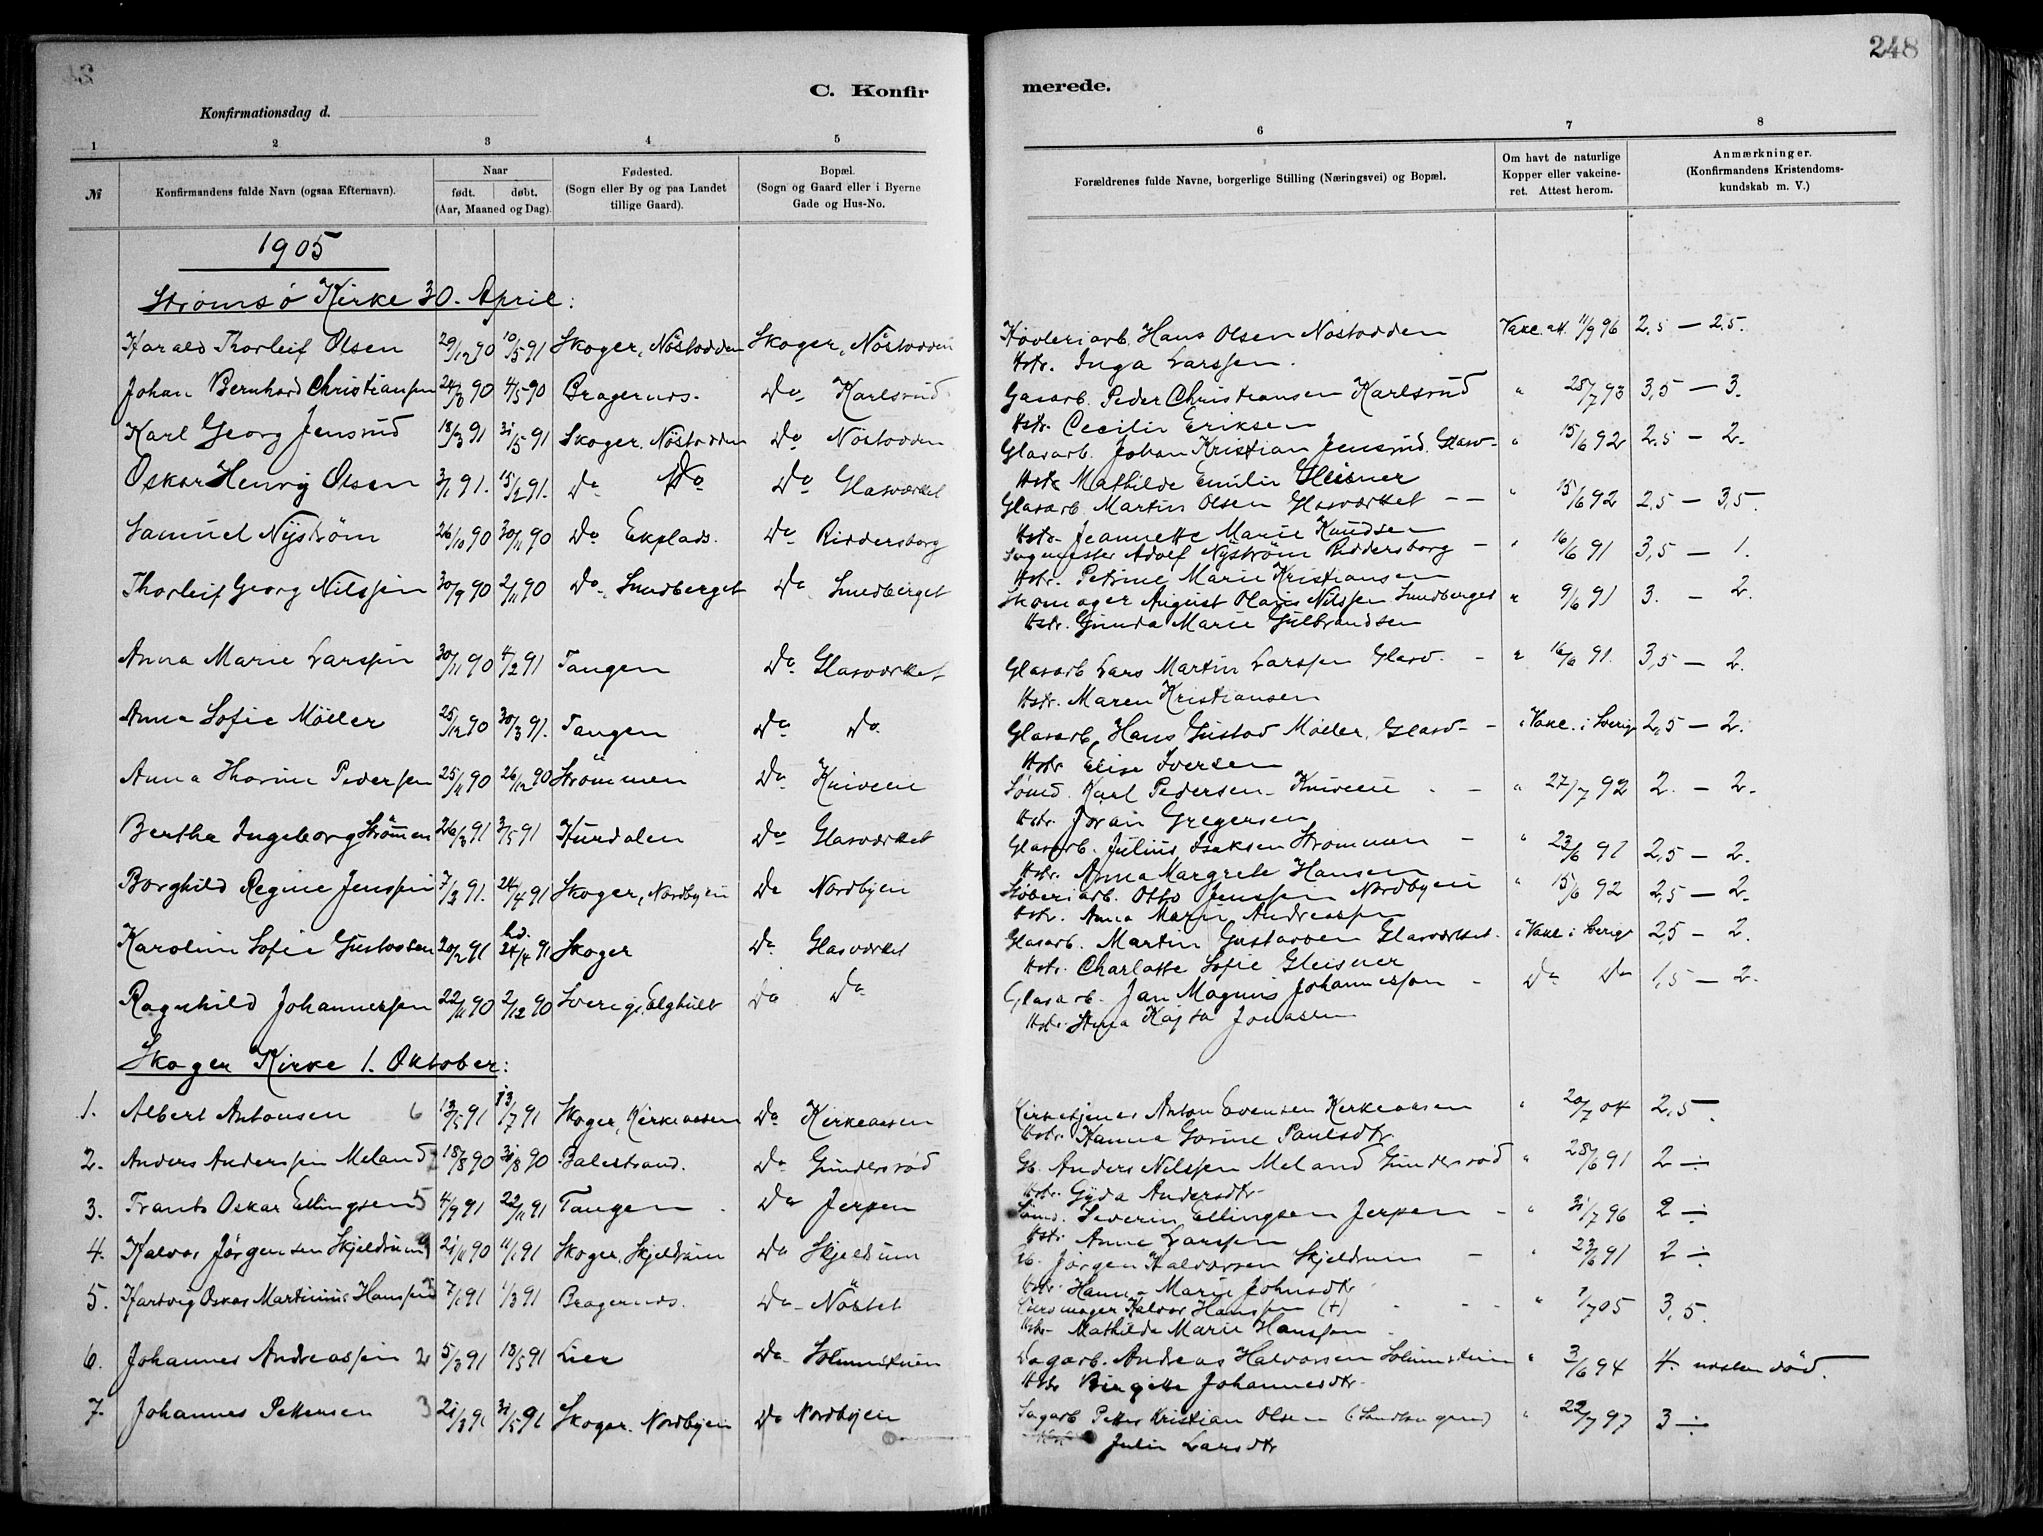 248
C. Konfir
merede.
Konfirmationsdag d.
1 2 3 4 5 6 7 8
№
Konfirmandens fulde Navn (ogsaa Efternavn).
Naar
født. døbt.
(Aar, Maaned og Dag).
Fødested.
(Sogn eller By og paa Landet
tillige Gaard).
Bopæl.
(Sogn og Gaard eller i Byerne
Gade og Hus-No.
Forældrenes fulde Navne, borgerlige Stilling (Næringsvei) og Bopæl.
Om havt de naturlige
Kopper eller vakcine-
ret. Attest herom.
Anmærkninger.
(Konfirmandens Kristendoms-
kundskab m. V.)
1905
Strømsø Kirke 30. April:
Harald Thorleif Olsen 29/12 90 10/5 91 Skoger, Nöstodden Skoger, Nöstodden Høvleriarb. Hans Olsen Nöstodden Vakc. att. 11/9 96 2,5 — 2,5.
Hstr. Inga Larssen.
Johan Bernhard Christiansen 24/3 90 4/5 90 Bragernes. Do Karlsrud Garvarb. Peder Christiansen Karlsrud " 28/7 93 3,5 — 3.
Hstr. Cecilie Eriksen
Karl Georg Jensrud 18/3 91 31/5 91 Skoger, Nöstodden Do Nöstodden Glasarb. Johan Kristian Jensrud Glasv. " 15/6 92 2,5 — 2.
Hstr. Mathilde Emilie Gleisner
Oskar Henrij Olsen 3/1 91. 15/2 91. Do Do Do Glasværket Glasarb. Martin Olsen Glasværket — — " 15/6 92 2,5 — 3,5.
Hstr. Jeannette Marie Knudsen
Samuel Nyström 26/10 90 30/11 90 Do Ekplads. Do Riddersborg Sagmester Adolf Nyström Riddersborg — " 16/6 91 3,5 — 1.
Hstr. Petrine Marie Kristiansen
Thorleif Georg Nilssen 30/9 90 2/11 90 Do Sundberget Do Sundberget Skomager August Olaus Nilssen Sundberget " 9/6 91 3. — 2.
Hstr. Gunda Marie Gulbrandsen
Anna Marie Larssen 30/11 90 4/2 91 Tangen Do Glasværket Glasarb Lars Martin Larssen Glasv. — " 16/6 91. 3,5 — 2.
Hstr. Maren Kristiansen
Anna Sofie Möller 25/12 90 30/3 91. Tangen Do Do Glasarb. Hans Gustav Möller, Glasv — i Vakc. i Sverige 2,5 — 2.
Hstr Elise Iversen
Anna Thorine Pedersen 25/11 90 26/12 90 Strömmen Do Kniveiie Sömd. Karl Pedersen — Kniveiie — " 27/7 92 2. — 2.
Hstr. Joran Gregersen
Bertha Ingeborg Strömmen 26/3 91 3/5 91 Hurdalen Do Glasværket Glasarb. Julius Isaksen Strømmen — " 23/6 91 2,5 — 2.
Hstr. Anna Margrete Hansen
Borghild Regine Jenssen 7/3 91. 24/4 91 Skoger, Nordbyen Do Nordbyen Støberiarb. Otto Jenssen Nordbyen " 15/6 92 2,5 — 2.
Hstr. Anna Marie Andreassen
Karoline Sofie Gustavsen 20/2 91 hd. 24/4 91 Skoger Do Glasværket Glasarb. Martin Gustavsen Glasværket. i Vakc. i Sverige 2,5 — 2.
Hstr. Charlotte Sofie Gleisner
Ragnhild Johannessen 22/11 90 2/12 90 Sverige, Elghult Do Do Glasarb. Jan Magnus Johannesson — Do Do 1,5 — 2.
Hstr. Stina Kajsa Jonasen
Skoger Kirke 1. Oktober:
1. Albert Antonsen 6 13/5 91 13/7 91 Skoger, Kirkeaasen Do Kirkeaasen Kirketjener Anton Evensen Kirkeaasen " 20/7 04 2,5.
Hstr. Hanna Gorine Paulsdtr
2. Anders Anderssen Meland 18/8 90 31/8 90 Balestrand. Do Gundersrød Gb. Anders Nilssen Meland Gundersrød " 28/6 91 2 ÷
Hstr. Gyda Andersdtr
3. Frants Oskar Ellingsen 5 4/9 91 22/11 91 Tangen Do Jerpen Sømd. Severin Ellingsen Jerpen — " 31/7 96 2 ÷
Hstr Anne Larssen
4. Halvor Jørgensen Skjeldrum 21/11 90 11/1 91 Skoger, Skjeldrum Do Skjeldrum Gb. Jørgen Halvorsen Skjeldrum — " 23/6 91 2 ÷
Hstr. Hanna Marie Johnsdtr
5. Hartvig Oskar Martinius Hanssen 7/1 91 1/3 91 Bragernes. Do — Nöstet Halvor Hanssen (+) — — — " 7/7 05 3,5.
Hstr Mathilde Marie Hanssen
6. Johannes Andreassen 2 5/3 91 18/5 91 Lier Do Solumstuen Dagarb. Andreas Halvorsen Solumstuen " 3/6 94 4. næsten død.
Hstr Birgitte Johannesdtr.
7. Johannes Pettersen 3 21/3 91 31/5 91 Skoger. Nordbyen Do Nordbyen Sagarb Petter Kristian Olsen " 22/7 97 3 ÷
Julie Larsdtr